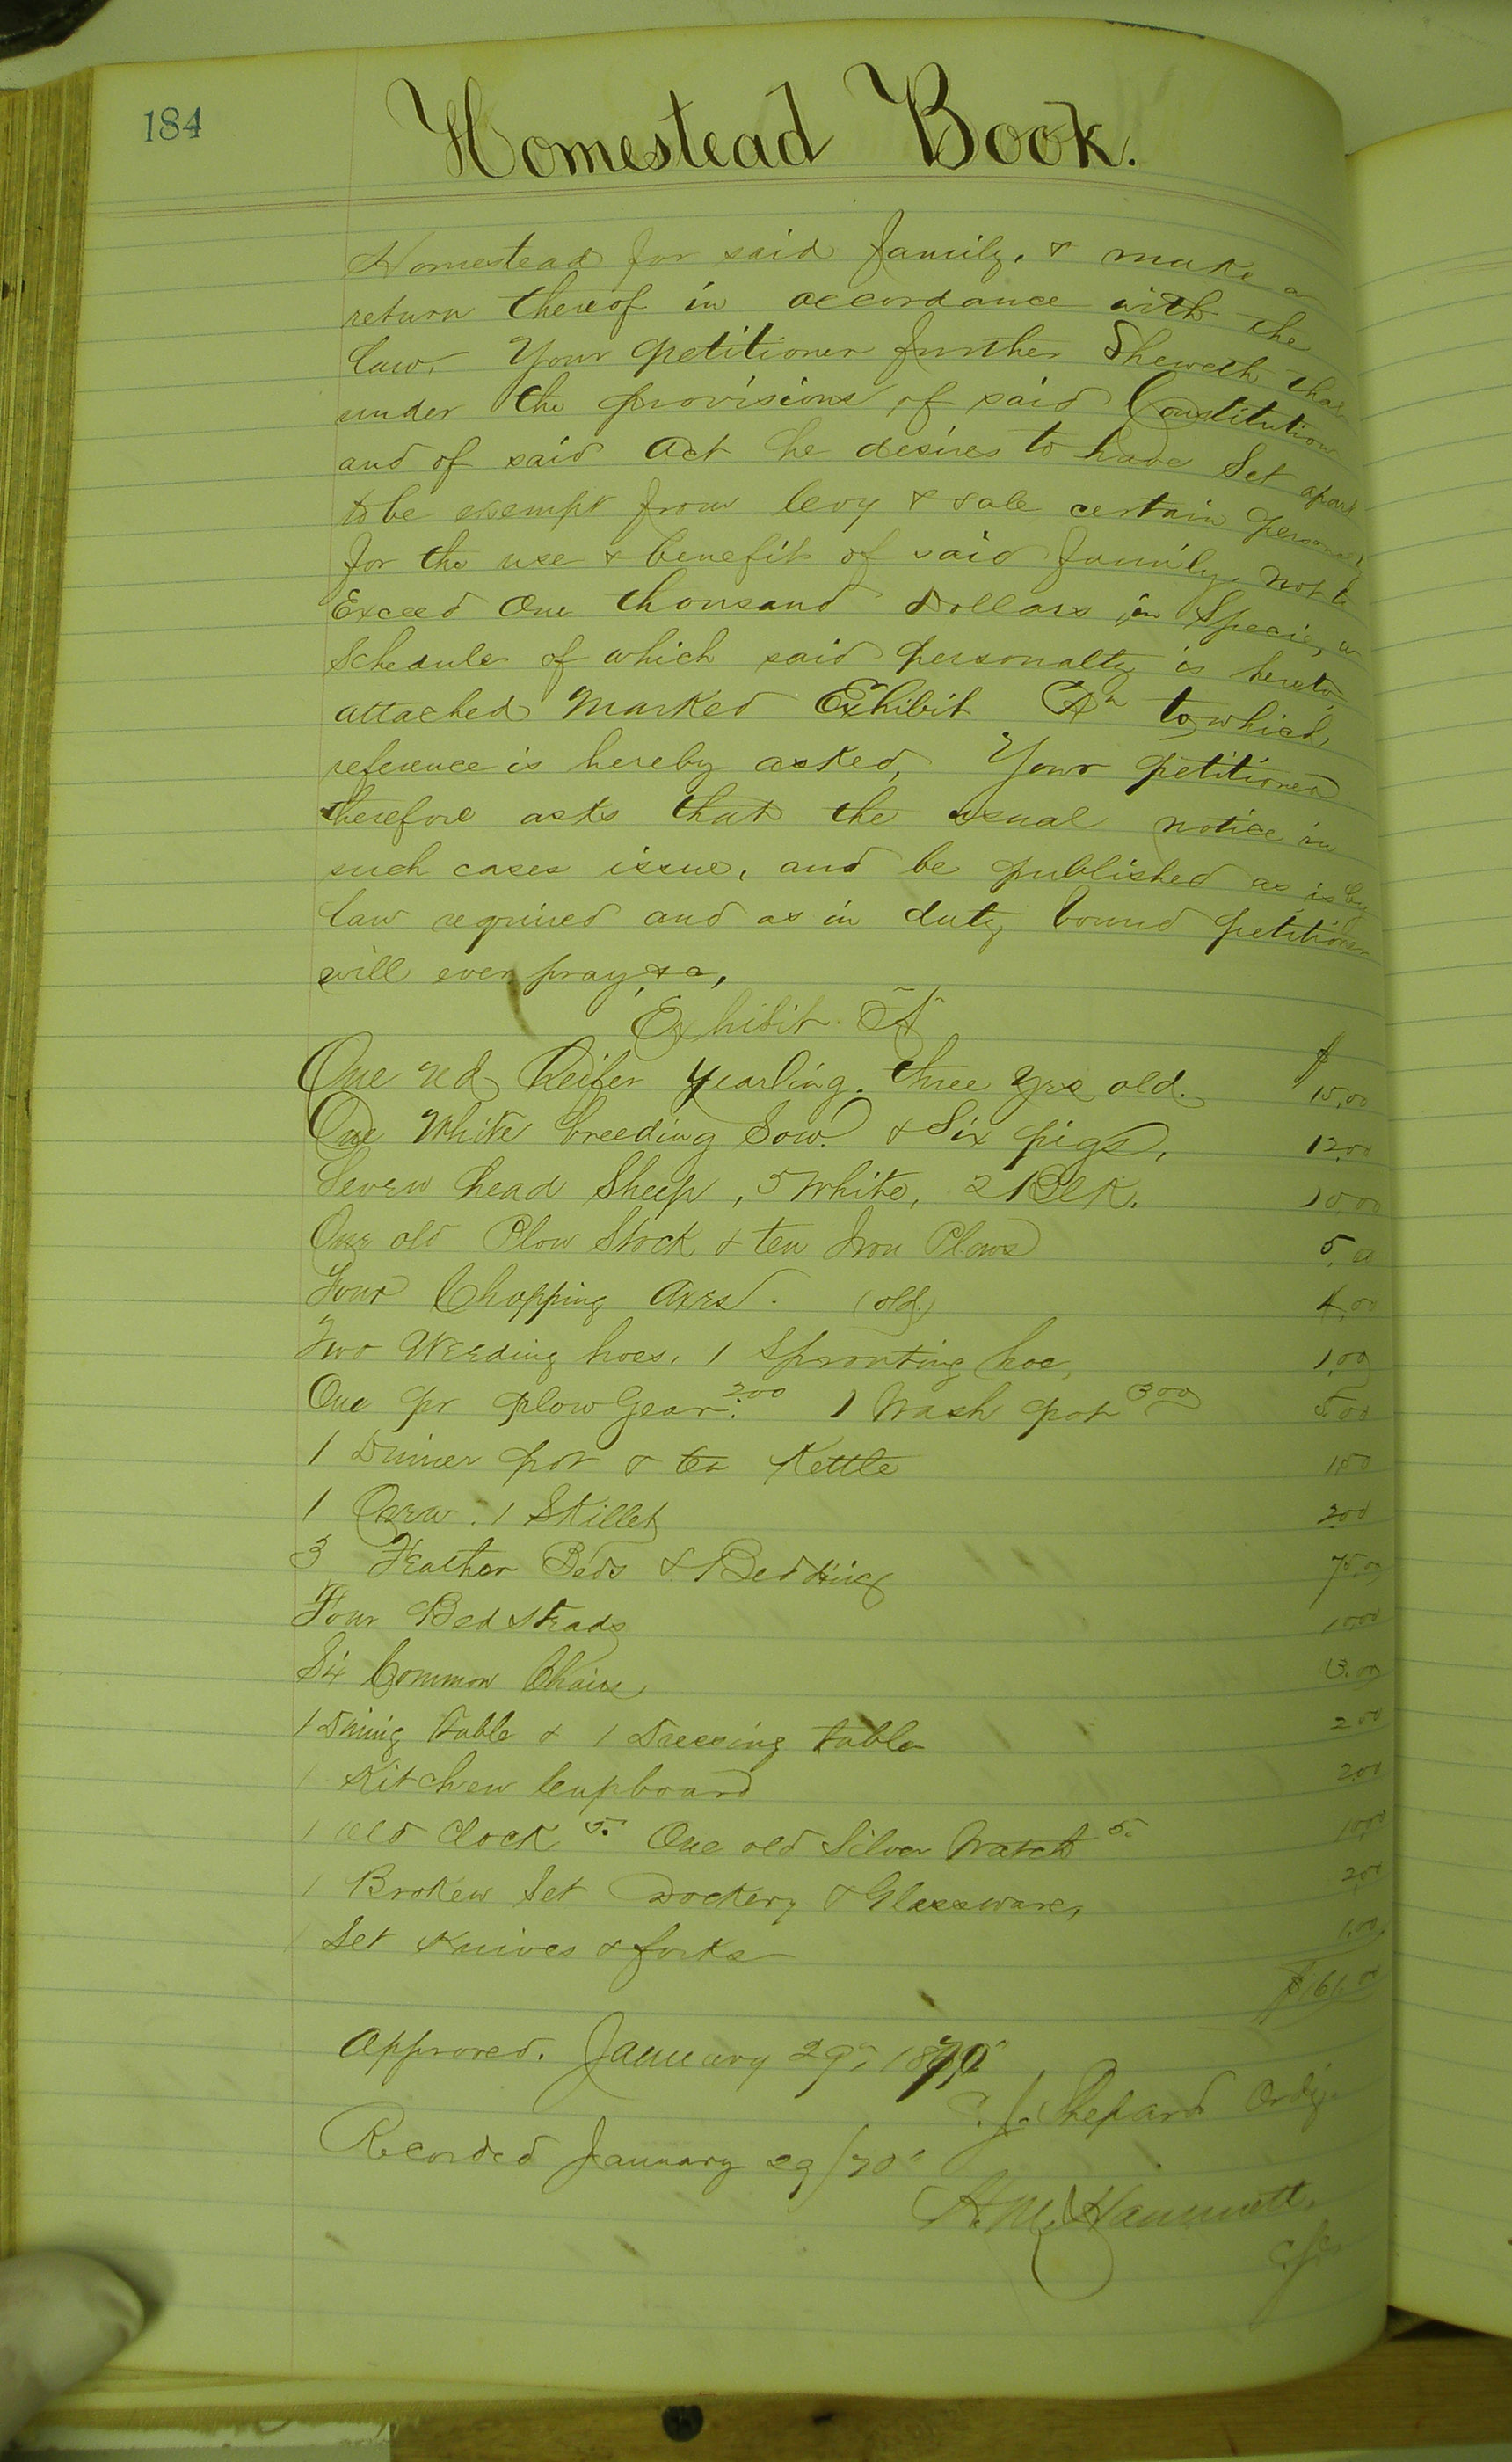 184
Homestead Book.
Homestead for said family, & make a
return thereof in accordance with the
law. Your petitioner further Sheweth that
under the provisions of said Constitution
and of said Act he desires to have Set apart
to be exempt from levy & sale certain
for the use & benefit of said family, not to
Exceed One thousand Dollars in Specie, a
Schedule of which said personalty is hereto
attached Marked Exhibit "A" to which
reference is hereby asked, Your petitioner
therefore asks that the usual notice in
such cases issue, and be published as is by
law required and as in duty bound petitioner
will ever pray &c,
Exhibit "A"
One red Heifer Yearling. three yrs old. $ 15.00
One White breeding Sow. & Six pigs, 12.00
Seven head Sheep, 5 White, 2 Blk. 10.00
One old Plow Stock & ten Iron Plows 5.00
Four Chopping Axes. (old.) 4.00
Two Weeding hoes, 1 Sprouting hoe, 1.00
One pr plow Gear. 2 00 1 Wash pot 3 00 5 00
1 Dinner pot & tea Kettle
1 Oven. 1 Skillet 2 00
3 Feather Beds & Bedding 75.00
Four Bedsteads 10.00
Six Common Chairs 3.00
1 Dining table & 1 Dressing table 2 00
1 Kitchen Cupboard 2.00
1 old Clock 5. One old Silver Watch 5. 10.00
1 Broken Set & Glassware, 2.00
1 Set Knives & forks 1.00
Approved. January 29", 1870
C. J. Shepard Ordy
Recorded January 29/70"
H. M. Hammett